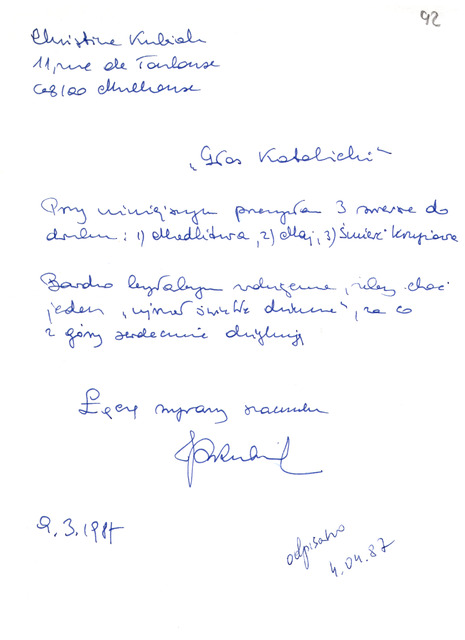 92
Christine Kubiak
11, rue de Toulouse
68100 Mulhouse
„Głos Katolicki"
Przy niniejszym przesyłam 3 wiersze do
druku: 1) Modlitwa, 2) Maj, 3) Śmierć
Bardzo byłabym wdzięczna, żeby choć
jeden „ujrzał światło dzienne", za co
z góry serdecznie dziękuję
Łączę wyrazy szacunku
9.3.1987
odpisano
4.04.87